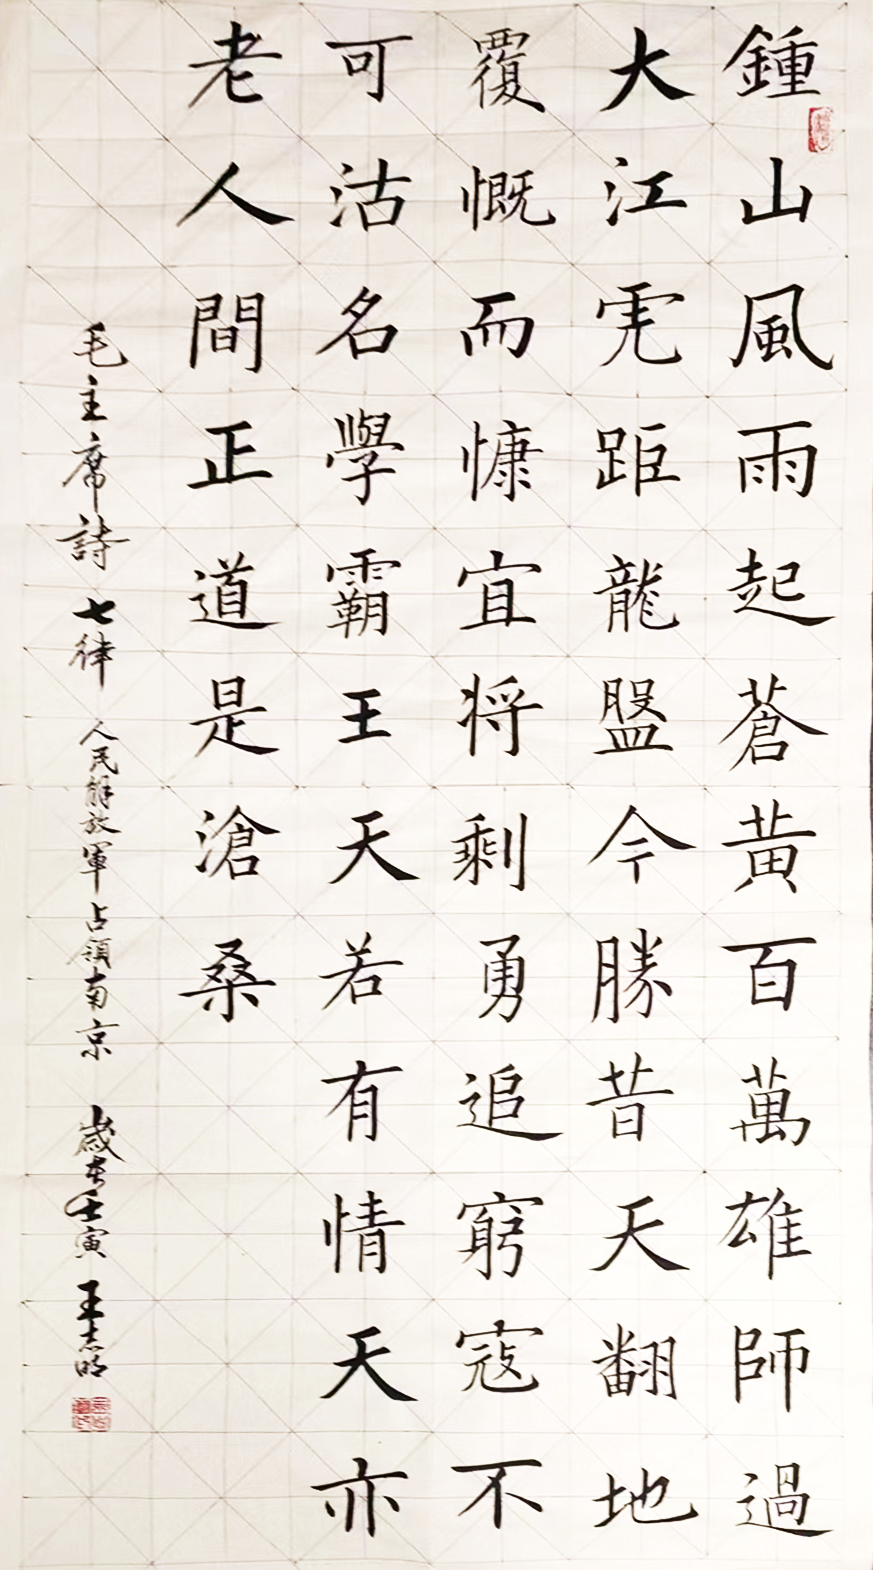 鍾山風雨起蒼黃百萬雄師過
大江虎距龍盤今勝昔天翻地
覆慨而慷宜将剩勇追窮寇不
可沽名學霸王天若有情天亦
老人間正道是滄桑
毛主席詩七律人民解放軍占領南京歲在壬寅王志明